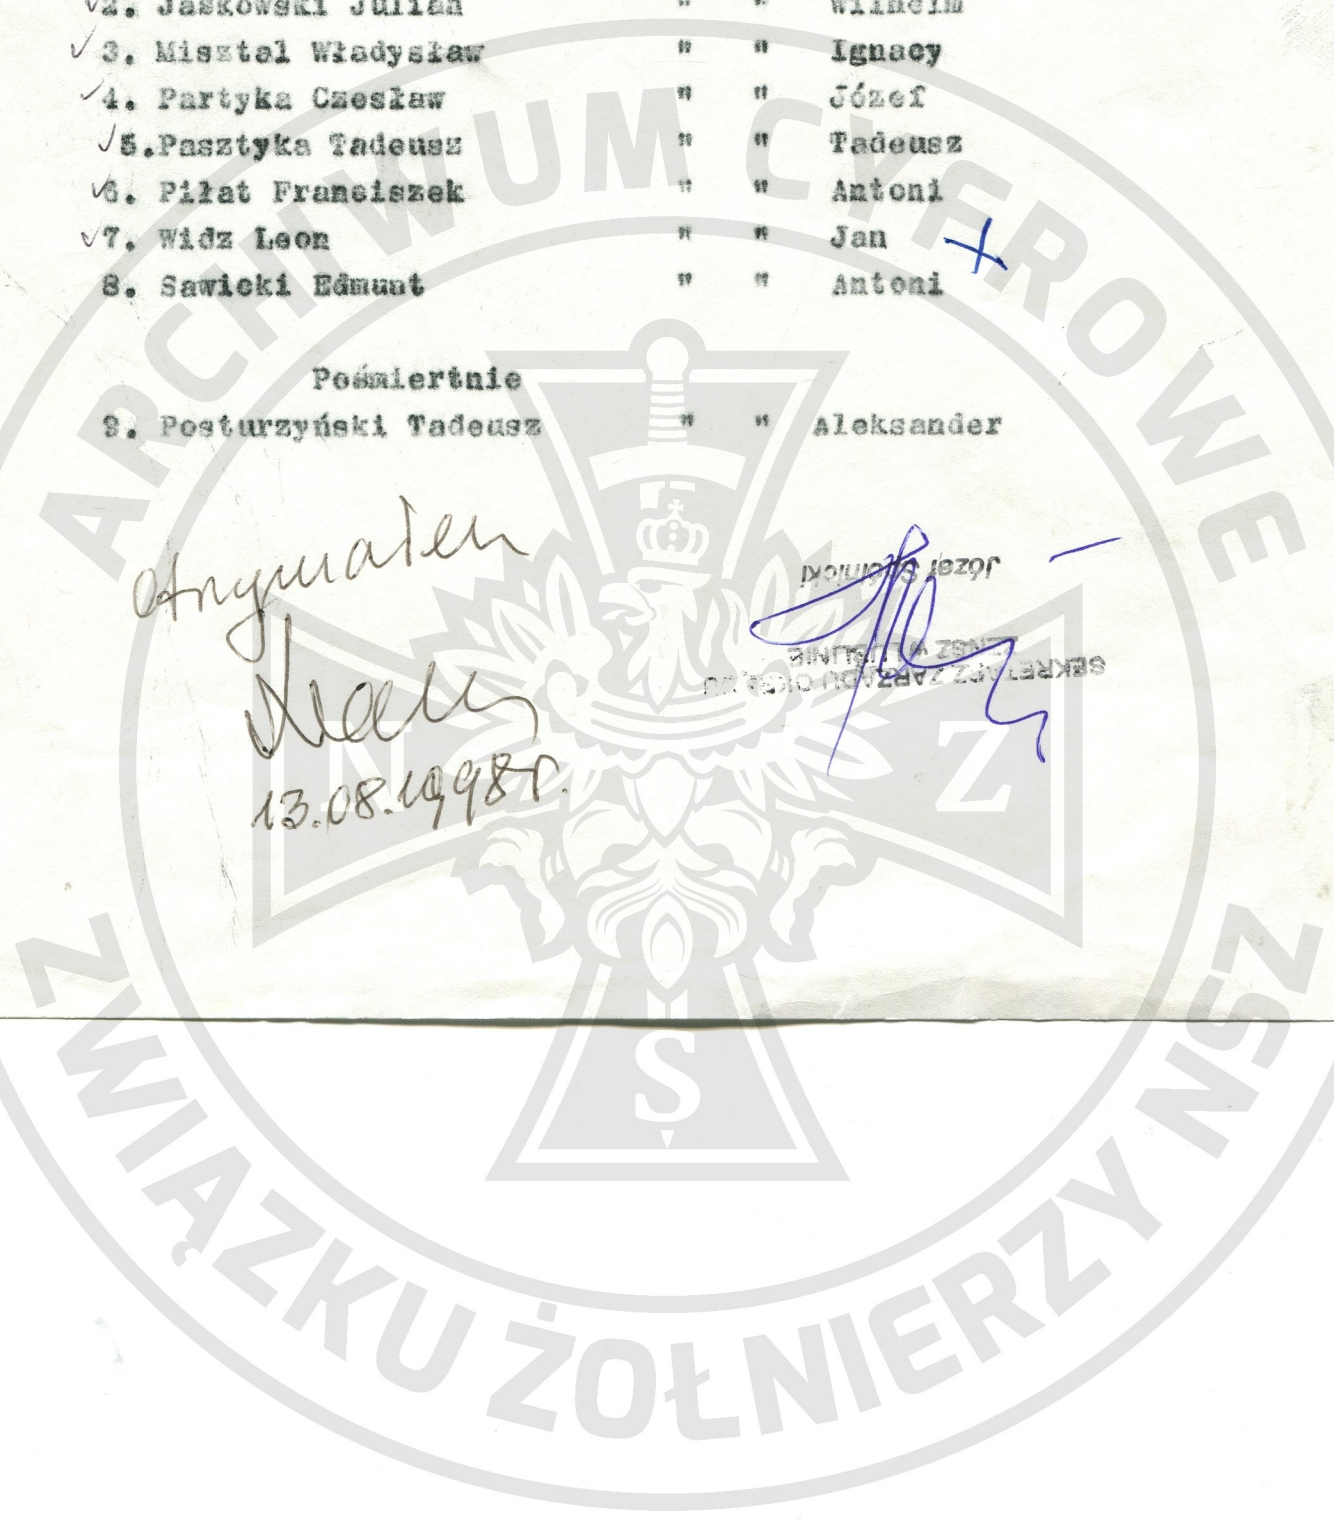 2. Jaśkowski Julian " " Wilhelm
3. Misztal Władysław " " Ignacy
4. Partyka Czesław " " Józef
5.Pasztyka Tadeusz " " Tadeusz
6. Piłat Franciszek " " Antoni
7. Widz Leon " " Jan
8. Sawicki Edmunt " " Antoni
Pośmiertnie
9. Posturzyński Tadeusz " " Aleksander
otrzymałem
13.08.1998r.
Józef
SEKRETARZ ZARZĄDU OKRĘGU
ZŻNSZ W LUBLINIE
ARCHIWUM CYFROWE
ZWIĄZKU ŻOŁNIERZY NSZ
N S Z